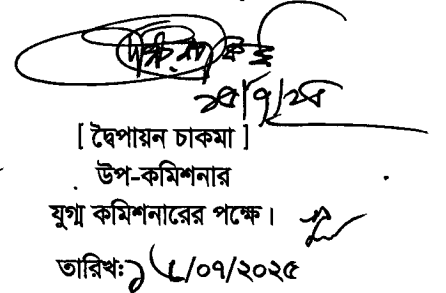 ১৫/৭/২৫
[ দ্বৈপায়ন চাকমা ]
উপ-কমিশনার
যুগ্ম কমিশনারের পক্ষে।
তারিখঃ ১৫/০৭/২০২৫